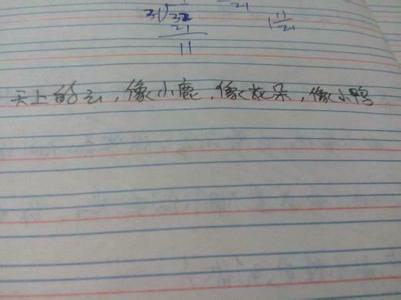 11
21)32
21
11
天上的云，像小鹿，像花朵，像小鸭